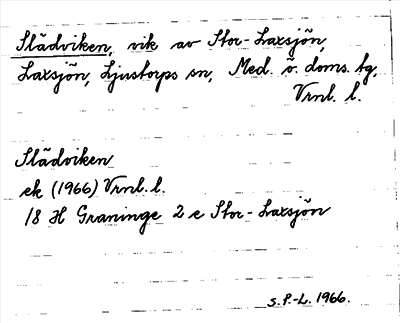 Slädviken, vik av Stor-Laxsjön,
Laxsjön, Ljustorps sn, Med. ö. doms. tg,
Vrnl. l.
Slädviken
ek (1966) Vrnl. l.
18 H Graninge 2 e Stor-Laxsjön
S.P.-L. 1966.